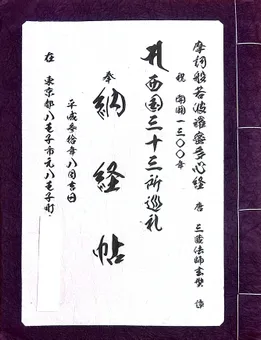 摩訶般若波羅蜜多心経 唐 三蔵法師玄奘 譯
祝 開創一三〇〇年
札 西国三十三所巡礼
奉 納経帖
平成参拾年八月吉日
在 東京都八王子市元八王子町